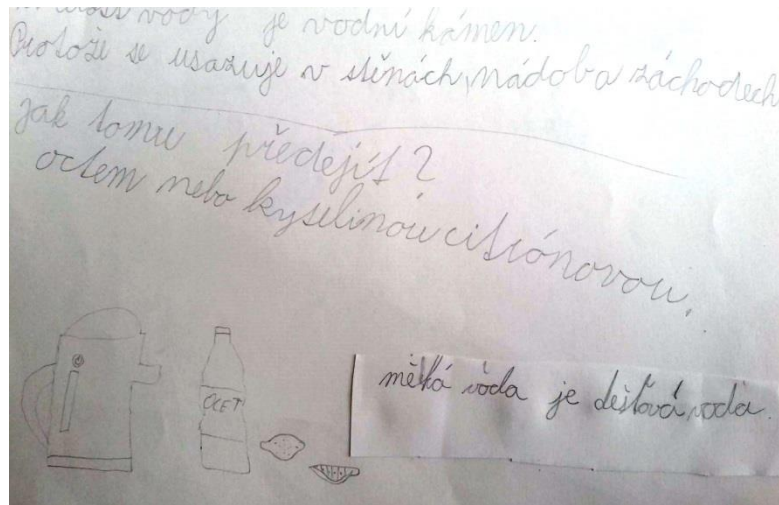 vody je vodní kámen.
Protože se usazuje v stěnách, nádoba záchodech
Jak tomu předějít?
octem nebo kyselinou citrónovou.
OCET
měká voda je dešťová voda.